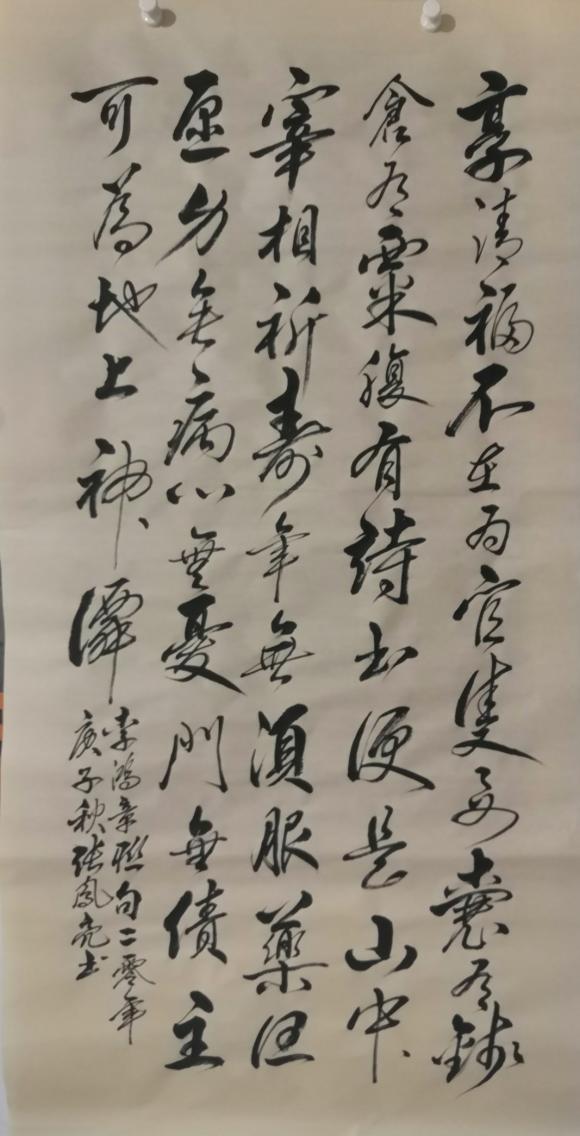 享清福不在为官隻要囊有錢
倉有粟腹有詩书便是山中
宰相祈壽年無須服藥但
愿身無病心無憂門無債主
可為地上神僊
李鴻章联句二零年
庚子秋张鳳亮书